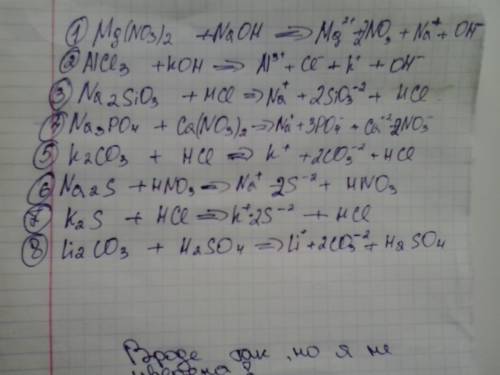 ① Mg(NO3)2 + NaOH ⇒ Mg²⁺ + 2NO3⁻ + Na⁺ + OH⁻
② AlCl3 + KOH ⇒ Al³⁺ + Cl⁻ + K⁺ + OH⁻
③ Na2SiO3 + HCl ⇒ Na⁺ + 2SiO3⁻² + HCl
④ Na3PO4 + Ca(NO3)2 ⇒ Na⁺ + 3PO4⁻ + Ca⁺² 2NO3⁻
⑤ K2CO3 + HCl ⇒ K⁺ + 2CO3⁻² + HCl
⑥ Na2S + HNO3 ⇒ Na⁺ 2S⁻² + HNO3
⑦ K2S + HCl ⇒ K⁺ 2S⁻² + HCl
⑧ Li2CO3 + H2SO4 ⇒ Li⁺ + 2CO3⁻² + H2SO4
Вроде так, но я не
уверена